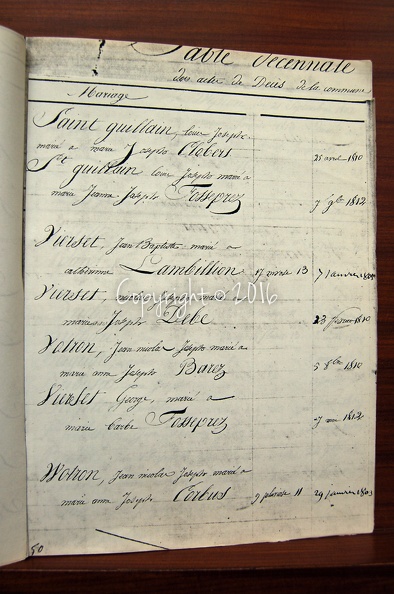 Table décennale
des actes de Décès de la commune
Mariage
Saint guillain, louis Joseph
marié a marie Josepho Clobers 25 avril 1810
St guillain louis Josepho marié a
marie Jeanne Josepho Fosseprez 7 9bre 1812
Vierset, Jean Baptiste marié a
Lambillion 17 nivose 13 7 janvier
Vierset, marié a
Josepho Lebe 23 février 1810
Votron, Jean nicolas Josepho marié a
marie ann Josepho Barez 5 8bre 1810
Vierset George, marié a
marie Barbe Fosseprez 7 mai 1812
Wotron, Jean nicolas Josepho marié a
marie ann Josepho Corbus 9 pluviose 11 29 janvier 1803
50
Copyright © 2016